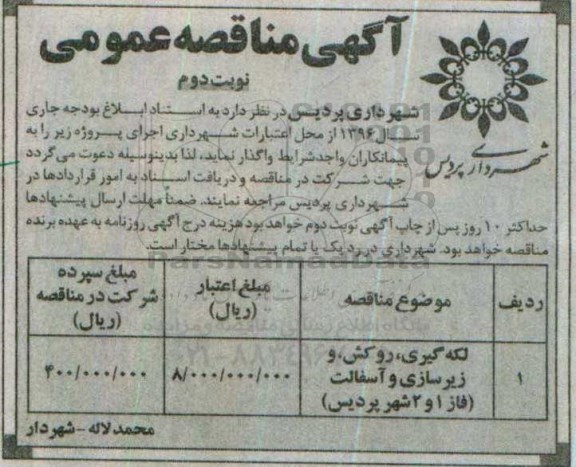 آگهی مناقصه عمومی
نوبت دوم
شهرداری پردیس
شهرداری پردیس در نظر دارد به استناد ابلاغ بودجه جاری
سال ۱۳۹۶ از محل اعتبارات شهرداری اجرای پروژه زیر را به
پیمانکاران واجد شرایط واگذار نماید، لذا بدینوسیله دعوت می گردد
جهت شرکت در مناقصه و دریافت اسناد به امور قراردادها در
شهرداری پردیس مراجعه نمایند. ضمناً مهلت ارسال پیشنهادها
حداکثر ۱۰ روز پس از چاپ آگهی نوبت دوم خواهد بود هزینه درج آگهی روزنامه به عهده برنده
مناقصه خواهد بود. شهرداری در رد یک یا تمام پیشنهادها مختار است.
ParsNamadData
ردیف موضوع مناقصه مبلغ اعتبار (ریال) مبلغ سپرده شرکت در مناقصه (ریال)
۱ لکه گیری، روکش، و زیرسازی و آسفالت (فاز ۱ و ۲ شهر پردیس) ۸/۰۰۰/۰۰۰/۰۰۰ ۴۰۰/۰۰۰/۰۰۰
محمد لاله - شهردار